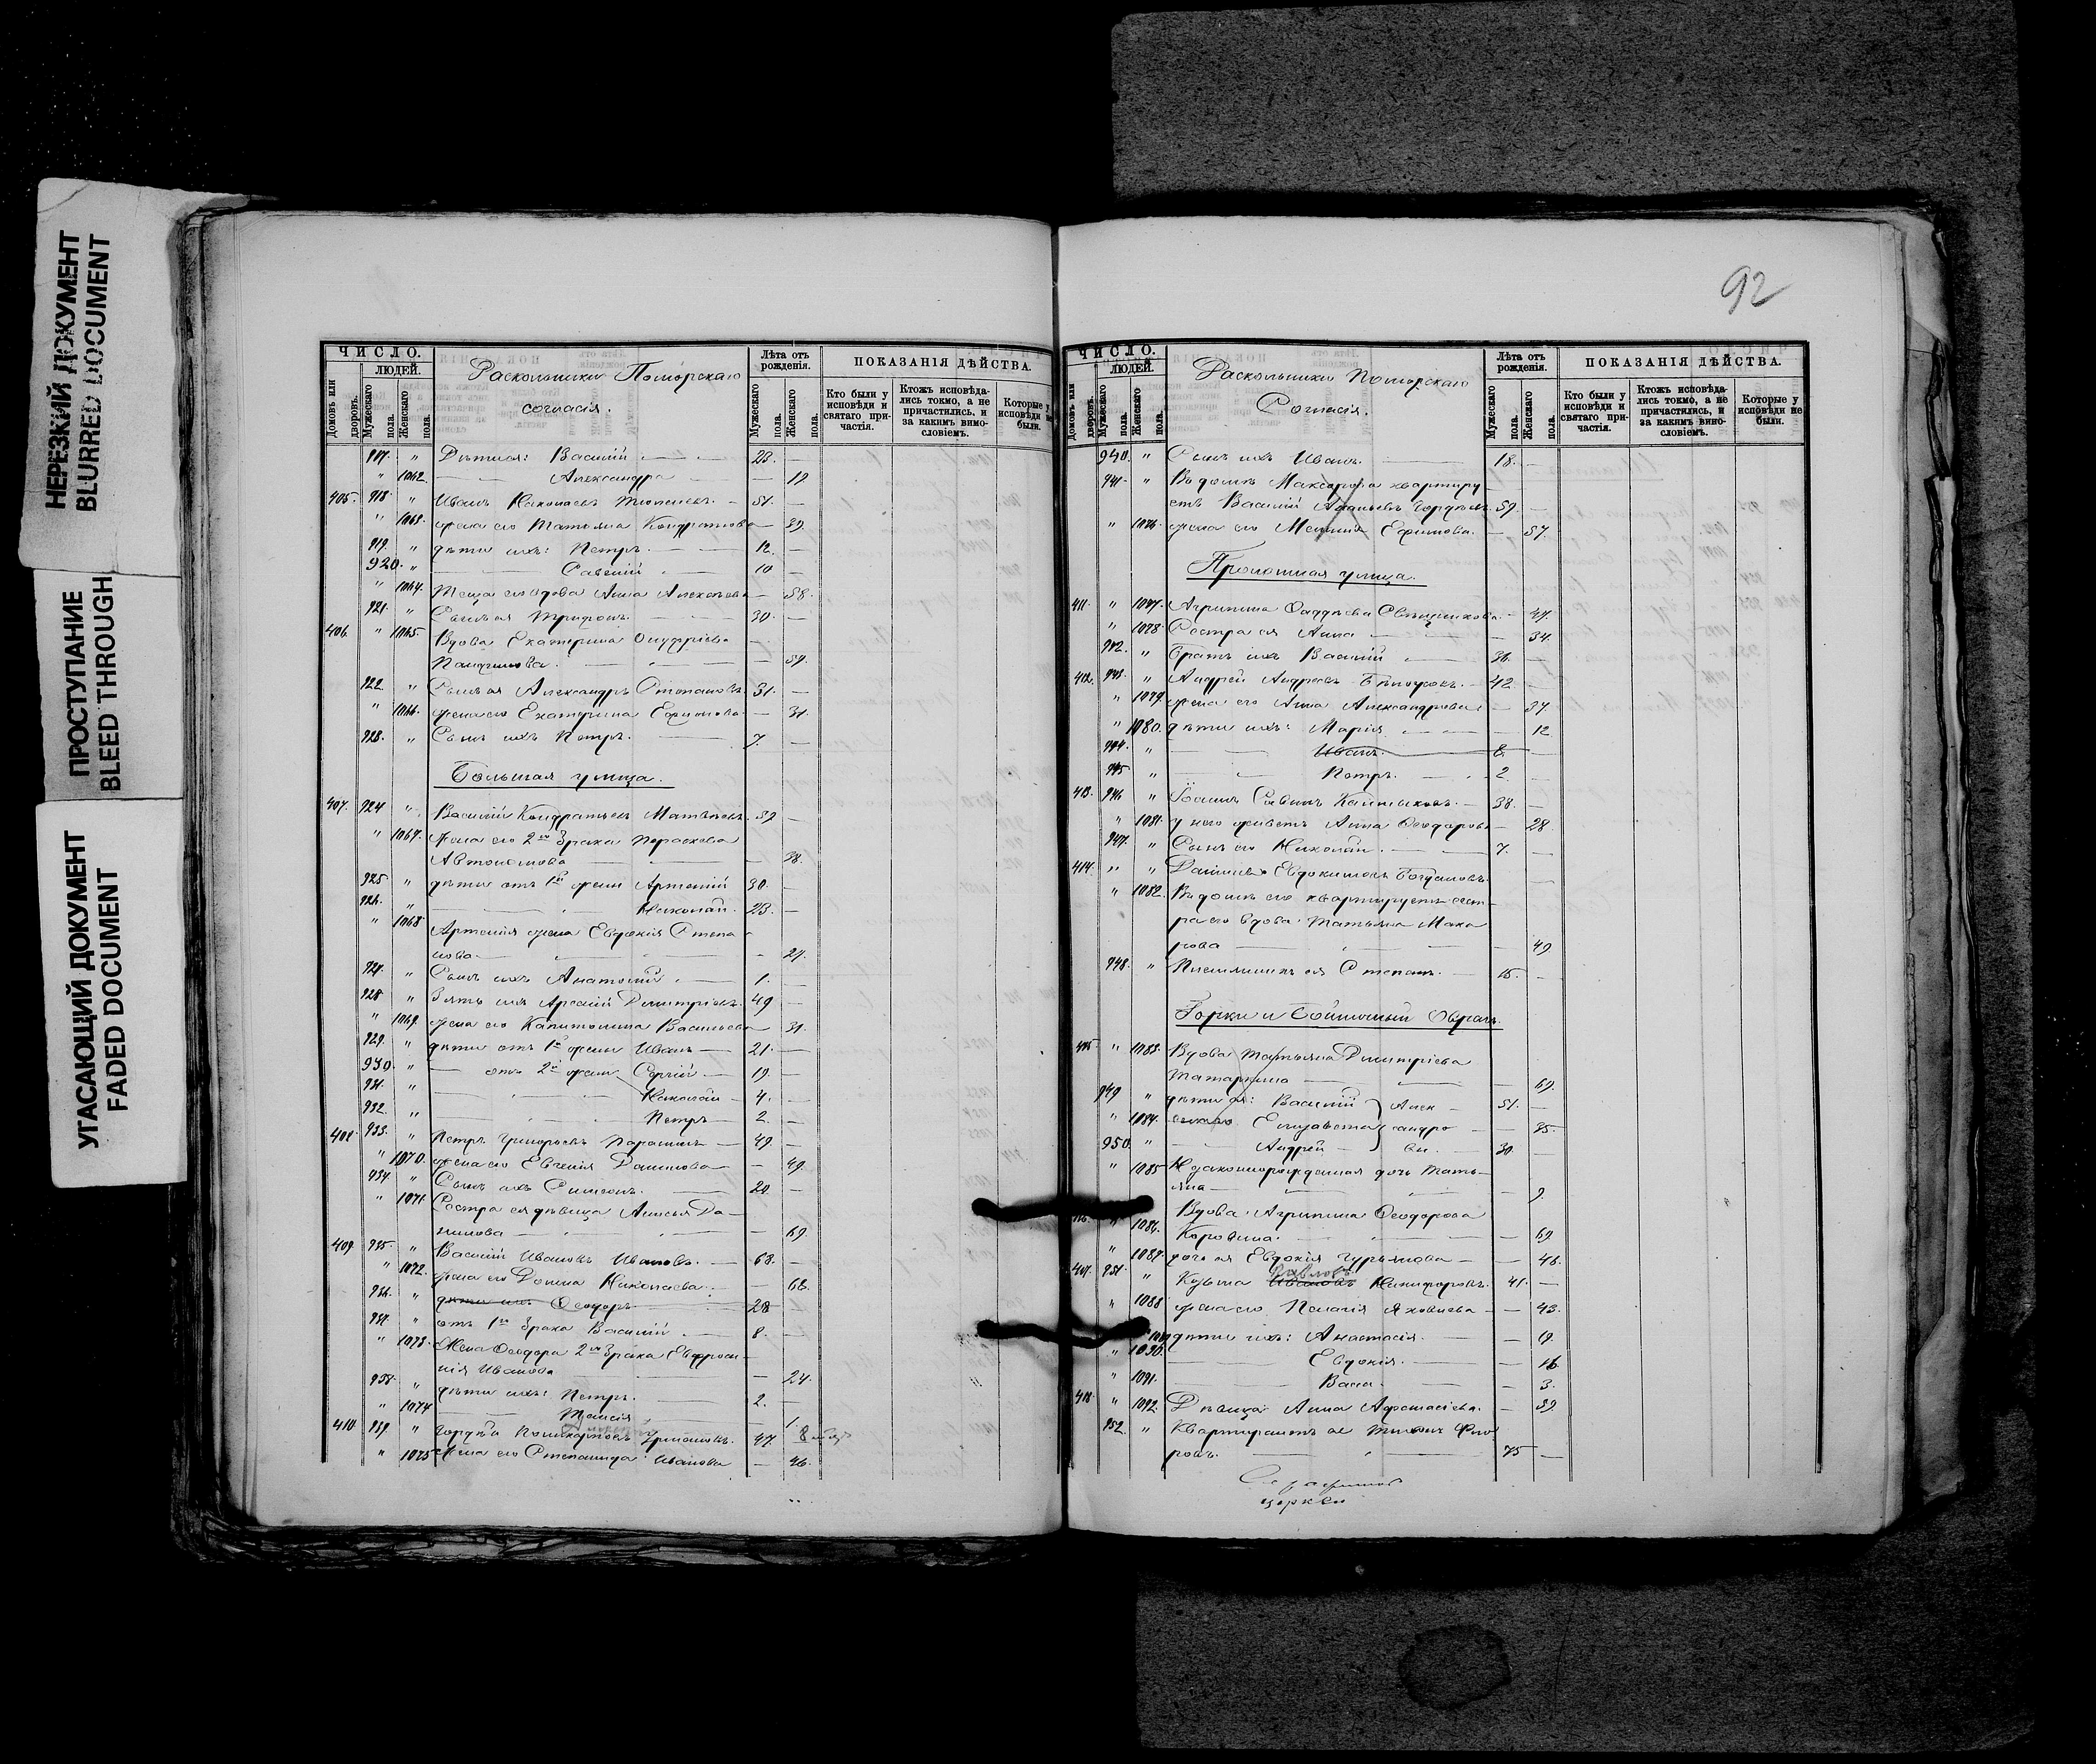 НЕРЕЗКИЙ ДОКУМЕНТ
BLURRED DOCUMENT
ПРОСТУПАНИЕ
BLEED THROUGH
УГАСАЮЩИЙ ДОКУМЕНТ
FADED DOCUMENT
ЧИСЛО.
ЛЮДЕЙ.
Домовъ или дворовъ.
Мужескаго пола.
Женскаго пола.
Раскольники Поморскаго
согласія.
Лѣта отъ рожденія.
Мужескаго пола.
Женскаго пола.
ПОКАЗАНІЯ ДѢЙСТВА.
Кто были у исповѣди и святаго причастія.
Ктожъ исповѣдались токмо, а не причастились, и за какимъ винословіемъ.
Которые у исповѣди не были.
917. " Дѣти ея: Василій — 23. —
" 1062. — Александра — — 19
405. 918. " Иванъ Николаевъ — 51. —
" 1063. жена его Татьяна Кондратьева — 39.
919. " дѣти ихъ: Петръ. — 12. —
920. " — Савелій — 10 —
" 1064. Теща его вдова Анна Алексѣева — 58.
921. " Сынъ ея Трифонъ. — 30. —
406. " 1065. Вдова Екатерина Онуфріева
— 59.
922. " Сынъ ея Александръ Степановъ. 31. —
" 1066. жена его Екатерина Ефимова — 31.
923. " Сынъ ихъ Петръ. — 7. —
Большая улица.
407. 924. " Василій Кондратьевъ Матвѣевъ. 59 —
" 1067. Жена его 2го брака Параскева
Автономова — — 38.
925. " дѣти отъ 1й жены Артемій 30. —
926. " — Николай. 23. —
" 1068. Артемія жена Евдокія Степа-
нова — — 27.
927. " Сынъ ихъ Анатолій — 1. —
928. " Зять ихъ Арсеній Димитріевъ. 49 —
" 1069. жена его Капитолина Васильева — 31.
929. " дѣти отъ 1й жены Иванъ — 21. —
930. " — отъ 2й жены Сергій — 19. —
931. " — Николай — 4. —
932. " — Петръ — 2. —
408. 933. " Петръ Григорьевъ — 49. —
" 1070. жена его Евгенія Данилова — — 49.
934. " Сынъ ихъ Симеонъ. — 20. —
" 1071. Сестра ея дѣвица Анисья Да-
нилова — — 69.
409. 935. " Василій Ивановъ Ивановъ. — 68. —
" 1072. жена его Домна Николаева. — 66.
936. " дѣти ихъ Ѳеодоръ — 28
937. " отъ 1го брака Василій — 8. —
" 1073. Жена Ѳеодора 2го брака Евфроси-
нія Иванова — 24.
938. " дѣти ихъ: Петръ. — 2. —
" 1074 — Таисія — 1.
410. 939. " 47.
" 1075 Жена его Степанида Иванова — 46.
92
ЧИСЛО.
ЛЮДЕЙ.
Домовъ или дворовъ.
Мужескаго пола.
Женскаго пола.
Раскольники Поморскаго
Согласія.
Лѣта отъ рожденія.
Мужескаго пола.
Женскаго пола.
ПОКАЗАНІЯ ДѢЙСТВА.
Кто были у исповѣди и святаго причастія.
Ктожъ исповѣдались токмо, а не причастились, и за какимъ винословіемъ.
Которые у исповѣди не были.
940. " Сынъ ихъ Иванъ. — 18. —
941. " Въ домѣ квартиру-
етъ Василій 59. —
" 1076. жена его Ефимова. — 57.
улица.
411. " 1077. Агрипина Ѳаддѣева — 47.
" 1078. Сестра ея Анна — — 34.
942. " Братъ ихъ Василій — 36. —
412. 943. " Андрей Андреевъ 42. —
" 1079. жена его Анна Александрова — 37
" 1080. дѣти ихъ: Марія — — 12
944. " — Иванъ. — 8.
945 " — Петръ. — 2. —
413. 946 " 38. —
" 1081. у него живетъ Анна Ѳеодорова — 28.
947. " Сынъ его Николай. — 7. —
414. " " Даніилъ Евдокимовъ Богдановъ.
" 1082. Въ домѣ его квартируетъ сест-
ра его вдова Татьяна Мака-
рова — — 49
948. " ея Степанъ. — 15. —
Горки и Оврагъ.
415. " 1083. Вдова Татьяна Димитріева
— 69.
949 " дѣти ея: Василій } Алек- 51. —
" 1084. Елизавета } сандро- — 35.
950. " — Андрей — } вы. 30. —
" 1085 Незаконнорожденная дочь Тать-
яна — — 9.
" 1086. Вдова Агрипина Ѳеодорова
Коровина. — — 69
" 1087. дочь ея Евдокія — — 46.
417. 951. " Козьма Ивановъ Павловъ Никифоровъ. 41. —
" 1088 жена его Пелагія Яковлева — — 43.
дѣти ихъ: Анастасія. — — 19.
" 1090. — Евдокія. — — 16
" 1091. — Васса. — — 3.
418. " 1092. Дѣвица Анна Афанасіева. — 39.
952. " 75 —
церкви